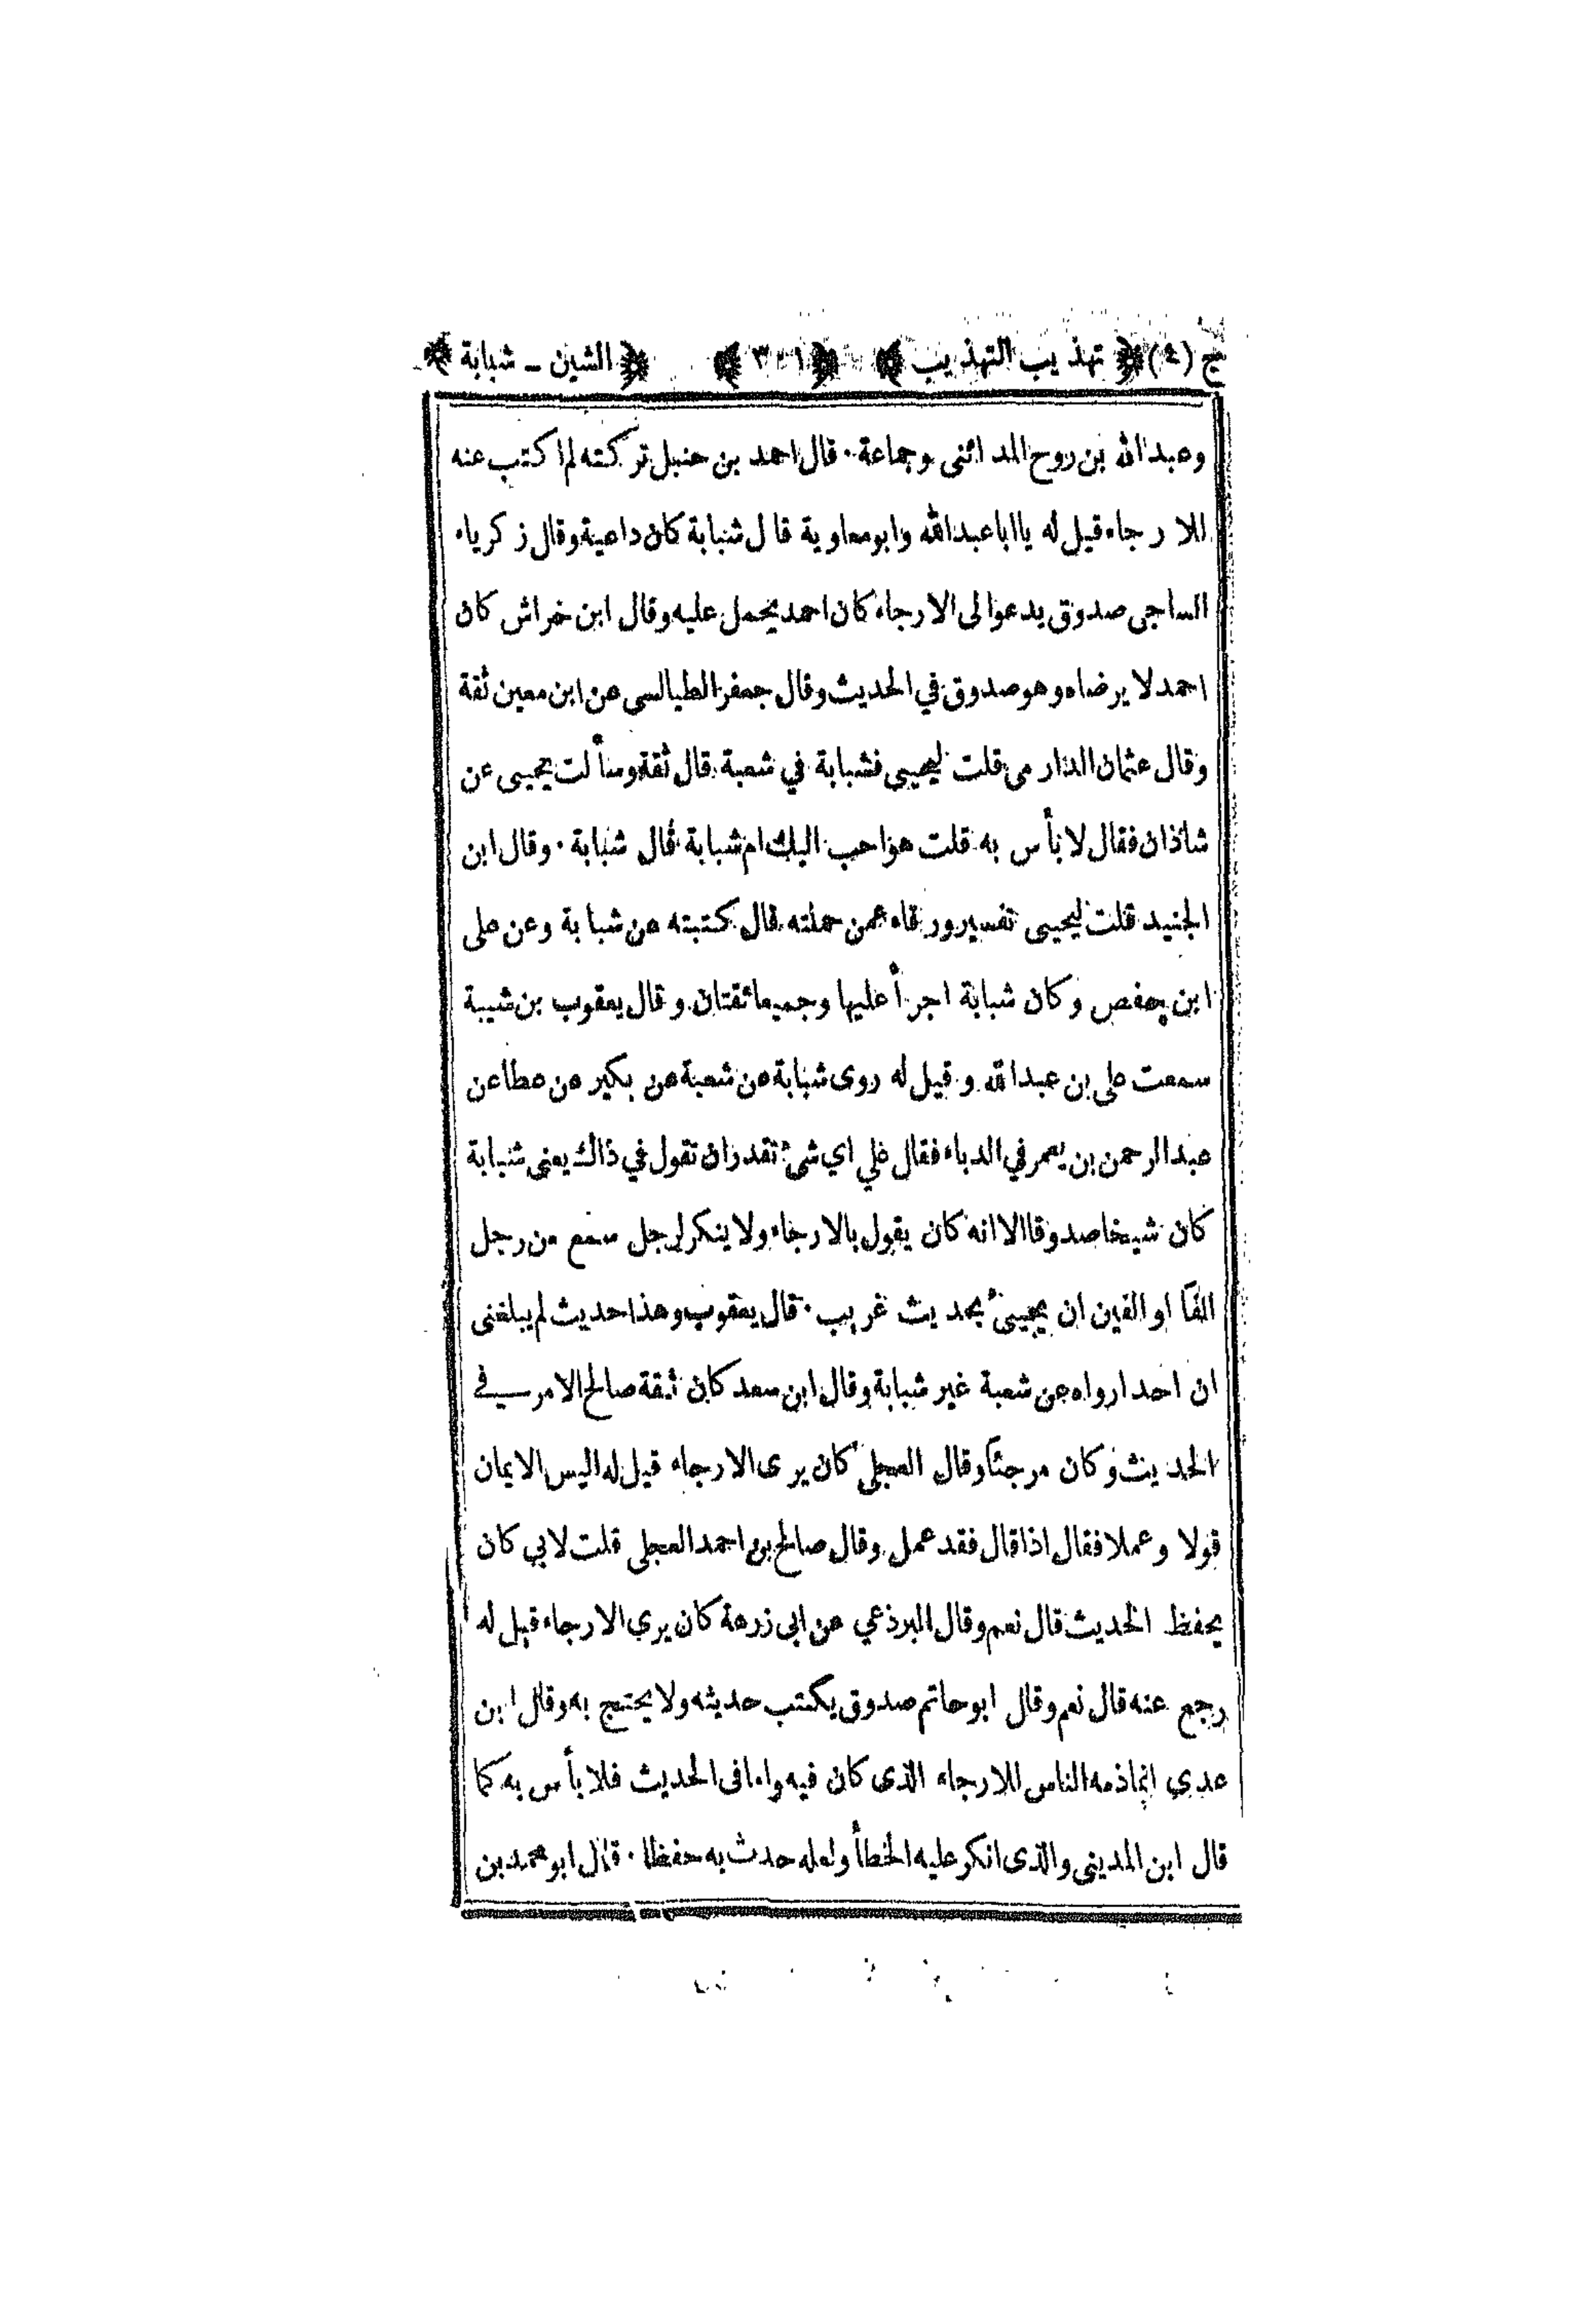 ج (٤) ﴿ تهذيب التهذيب ﴾ ﴿ ٣٠١ ﴾ ﴿ الشين ــ شبابة ﴾
وعبدالله بن روح المدائنى وجماعة ٠ قال احمد بن حنبل تركته لم اكتب عنه
للارجاء قيل له يا ابا عبدالله وابو معاوية قال شبابة كان داعية وقال زكرياء
الساجى صدوق يدعوا لى الارجاء كان احمد يحمل عليه وقال ابن خراش كان
احمد لا يرضاه وهو صدوق في الحديث وقال جعفر الطيالسى عن ابن معين ثقة
وقال عثمان الدارمى قلت ليحيى فشبابة في شعبة قال ثقة وسألت يحيى عن
شاذان فقال لا بأس به قلت هو احب اليك ام شبابة قال شبابة ٠ وقال ابن
الجنيد قلت ليحيى تفسير ورقاء عمن حملته قال كتبته عن شبابة وعن على
ابن حفص وكان شبابة اجرأ عليها وجميعا ثقتان وقال يعقوب بن شيبة
سمعت على بن عبدالله وقيل له روى شبابة عن شعبة عن بكير عن عطا عن
عبدالرحمن بن يعمر في الدباء فقال علي اي شئ تقدر ان تقول في ذاك يعنى شبابة
كان شيخا صدوقا الا انه كان يقول بالارجاء ولا ينكر لرجل سمع من رجل
الفا او الفين ان يجيئ بحديث غريب ٠ قال يعقوب وهذا حديث لم يبلغنى
ان احدا رواه عن شعبة غير شبابة وقال ابن سعد كان ثقة صالح الامر في
الحديث وكان مرجئا وقال العجلى كان يرى الارجاء قيل له اليس الايمان
قولا وعملا فقال اذا قال فقد عمل وقال صالح بن احمد العجلى قلت لابي كان
يحفظ الحديث قال نعم وقال البرذعي عن ابى زرعة كان يرى الارجاء قيل له
رجع عنه قال نعم وقال ابو حاتم صدوق يكتب حديثه ولا يحتج به وقال ابن
عدي انما ذمه الناس للارجاء الذى كان فيه واما فى الحديث فلا بأس به كما
قال ابن المدينى والذى انكر عليه الخطأ ولعله حدث به حفظا ٠ قال ابو محمد بن